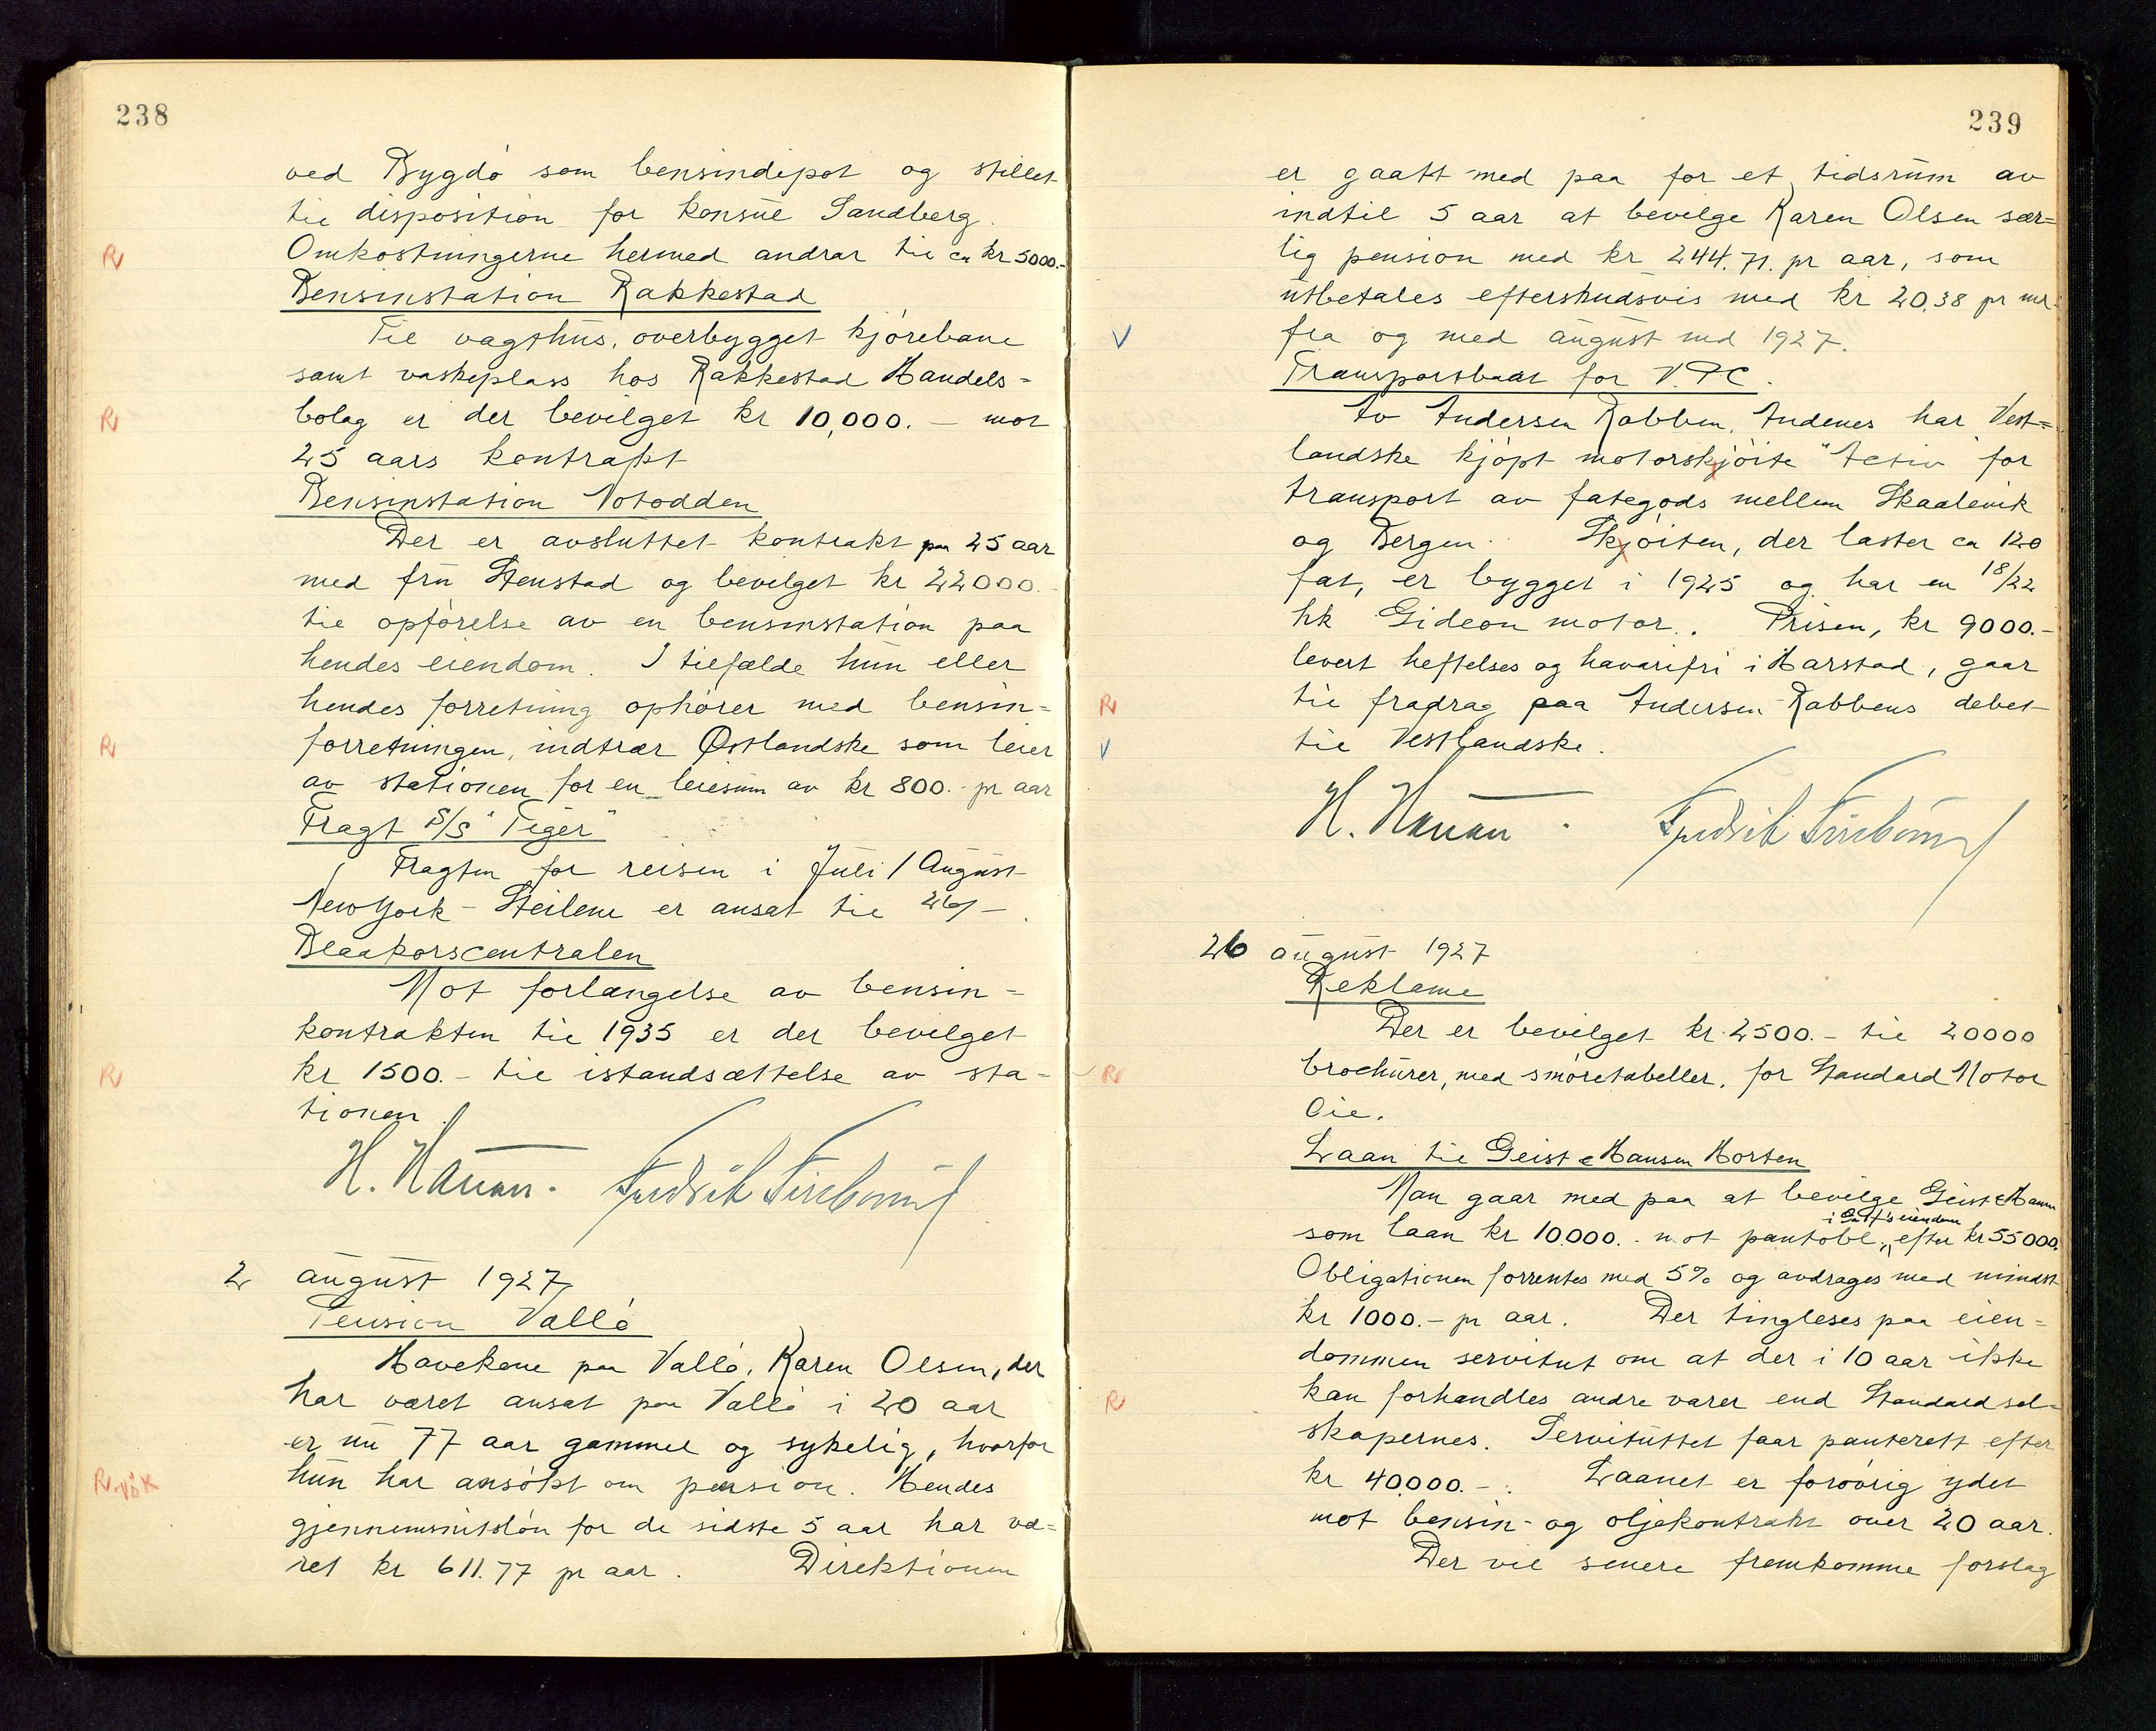 238
ved Bygdö som bensindepot og stillet
til disposition for konsul Sandberg.
Omkostningerne hermed andrar til ca kr 5000.-
R
Bensinstation Rakkestad
Til vagthus, overbygget kjörebane
samt vaskeplass hos Rakkestad Handels=
bolag er der bevilget kr 10,000.- mot
R
25 aars kontrakt
Bensinstation Notodden
Der er avsluttet kontrakt paa 25 aar
med fru Stenstad og bevilget kr 22000.-
til opförelse av en bensinstation paa
hendes eiendom. I tilfælde hun eller
hendes forretning ophörer med bensin=
forretningen, indtrær Østlandske som leier
R
av stationen for en leiesum av kr 800.- pr aar
Fragt S/S "Tiger"
Fragten for reisen i Juli / August
New York - Steilene er ansat til 26/-
Blaakorscentralen
Mot forlængelse av bensin=
kontrakten til 1935 er der bevilget
kr 1500.- til istandsættelse av sta=
R
tionen.
H. Hauan. Fredrik
2 august 1927
Pension Vallö
Havekone paa Vallö, Karen Olsen, der
har været ansat paa Vallö i 20 aar
er nu 77 aar gammel og sykelig, hvorfor
hun har ansökt om pension. Hendes
R
gjennemsnitslön for de sidste 5 aar har væ=
ret kr 611.77 pr aar. Direktionen
239
er gaatt med paa for et tidsrum av
indtil 5 aar at bevilge Karen Olsen sær=
lig pension med kr 244.71. pr aar, som
utbetales efterskudsvis med kr 20.38 pr md.
fra og med august md 1927.
V
Transportbaat for V.P.C.
Av Andersen Rabben, Andenes har Vest=
landske kjöpt motorskjöite "Activ" for
transport av fategods mellem Skaalevik
og Bergen. Skjöiten, der laster ca 120
fat, er bygget i 1925 og har en 18/22
hk Gideon motor. Prisen, kr 9000.-
levert heftelses og havarifri i Harstad, gaar
til fradrag paa Andersen Rabbens debet
R
til Vestlandske.
V
H. Hauan. Fredrik
26 august 1927
Reklame
Der er bevilget kr. 2500.- til 20000
brochurer, med smöretabeller, for Standard Motor
R
Oil.
Laan til Geist & Hansen Horten
Man gaar med paa at bevilge Geist & Hansen
i Geist's eiendom
som laan kr 10.000.- mot pantobl. efter kr 55000.
Obligationen forrentes med 5% og avdrages med mindst
kr 1000.- pr aar. Der tingleses paa eien=
dommen servitut om at der i 10 aar ikke
kan forhandles andre varer end Standardsel=
R
skapernes. Servituttet faar panterett efter
kr 40.000.-. Laanet er forövrig ydet
mot bensin- og oljekontrakt over 20 aar.
Der vil senere fremkomme forslag